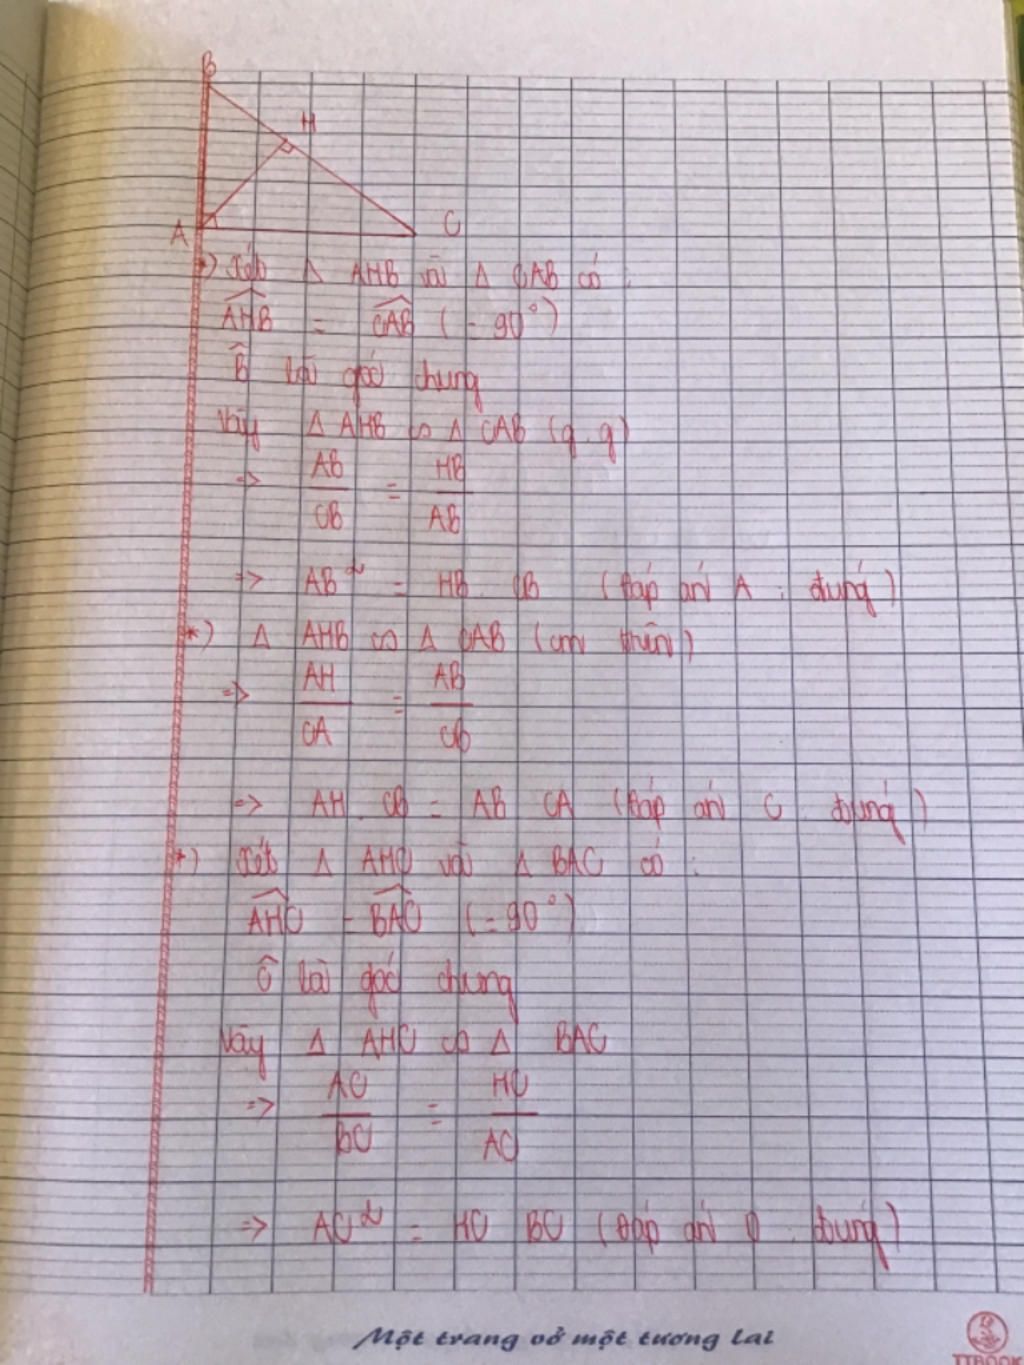 B
H
A C
*) Xét Δ AHB và Δ CAB có :
AHB = CAB ( = 90°)
B̂ là góc chung
Vậy Δ AHB ∽ Δ CAB (g.g)
=> AB/CB = HB/AB
=> AB² = HB. CB (Đáp án A : đúng)
*) Δ AHB ∽ Δ CAB (cm trên)
=> AH/CA = AB/CB
=> AH . CB = AB CA (Đáp án C đúng)
*) Xét Δ AHC và Δ BAC có :
AHC = BAC (= 90°)
Ĉ là góc chung
Vậy Δ AHC ∽ Δ BAC
=> AC/BC = HC/AC
=> AC² = HC BC (Đáp án D : đúng)
Một trang vở một tương lai
TTBOOK